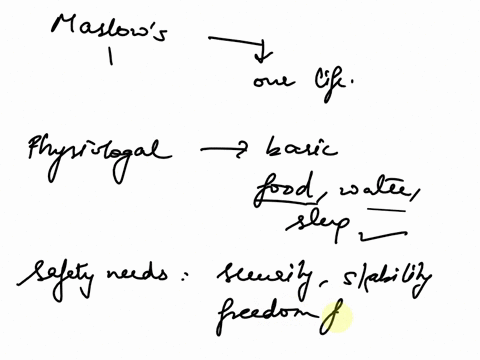 Maslow's →
one life.
Physiologal → basic
food, water,
sleep
Safety needs : security, stability
freedom f